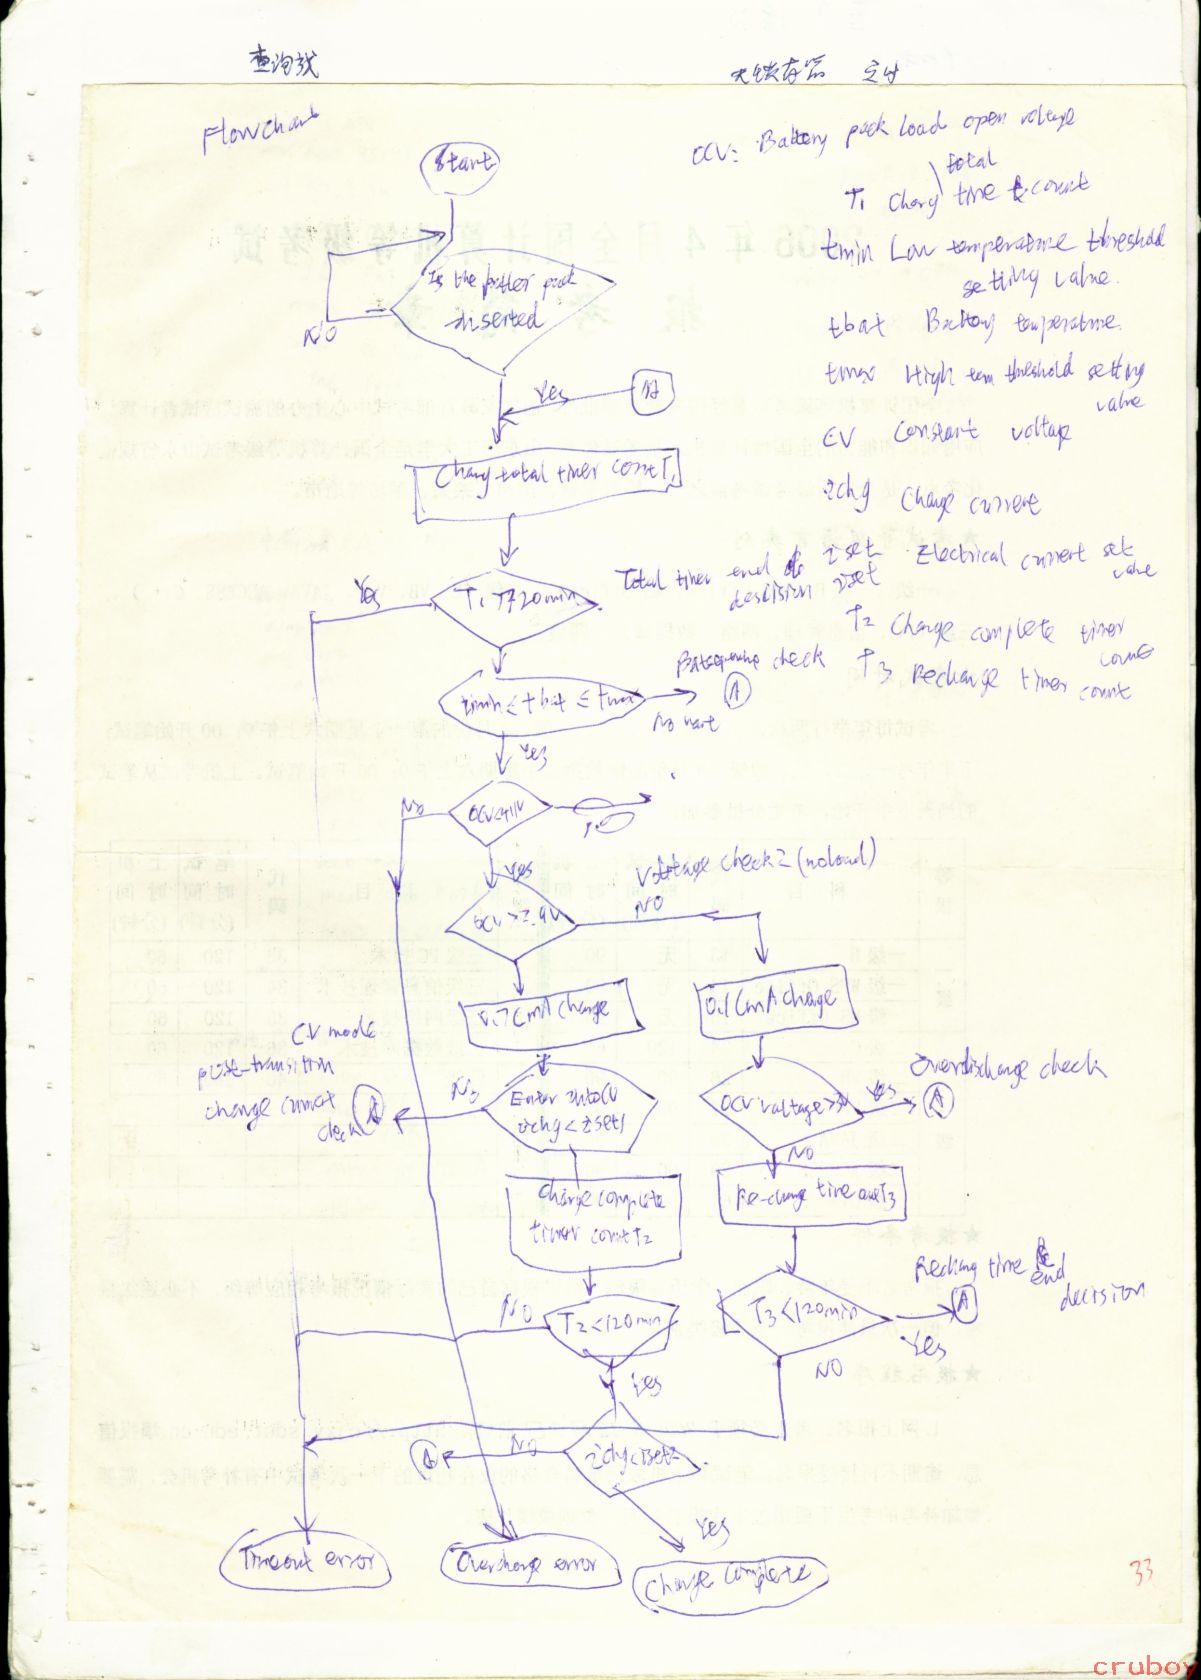 查询找
Flowchart
Start
Is the batter pack
inserted
NO
Yes
A
Charg total timer cont T1
T1 > 720min
Yes
Total timer end
tmin ≤ tbat ≤ tmax
check
A
No wart
Yes
OCV<4.1V
No
Yes
OCV>2.9V
Voltage check 2 (noload)
NO
0.7CmA charge
0.1CmA charge
CV mode
post-transition
charge current
check
A
No
Enter into CV
ichg < iset1
OCV voltage >
Yes
Overdischarge check
A
NO
charge complete
timer cont T2
Re-charge time T3
T2 <120min
NO
Yes
T3 <120min
Recharg time
end
decision
A
Yes
NO
ichg<iset2
NO
A
Yes
Timeout error
Overcharge error
Charge complete
OCV: Battery pack load open voltage
total
T1 Charg time count
tmin Low temperature threshold
setting value
tbat Battery temperature
tmax High tem threshold setting
value
CV Constant voltage
ichg Charge current
iset Electrical current set
value
T2 Charge complete timer
count
T3 Recharge timer count
33
cruboy